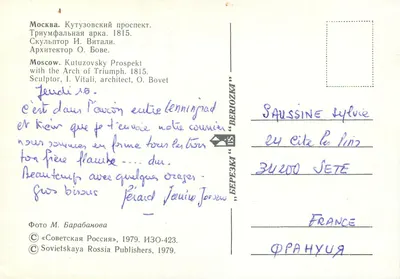 Москва. Кутузовский проспект.
Триумфальная арка. 1815.
Скульптор И. Витали.
Архитектор О. Бове.
Moscow. Kutuzovsky Prospekt
with the Arch of Triumph. 1815.
Sculptor, I. Vitali, architect, O. Bovet
Jeudi 10.
c'est dans l'avion entre Leningrad
et Kiev que je t'envoie notre courrier
nous sommes en forme tous les trois
ton frère flambe .... dur.
Beautemps avec quelques orages.
Gros bisous Gérard Janine
Фото М. Барабанова
© «Советская Россия», 1979. ИЗО-423.
© Sovietskaya Rossia Publishers, 1979.
"БЕРЕЗКА" "BERIOZKA"
SAUSSINE Sylvie
24 Cité les Pins
34200 SETE
FRANCE
ФРАНЦУЯ